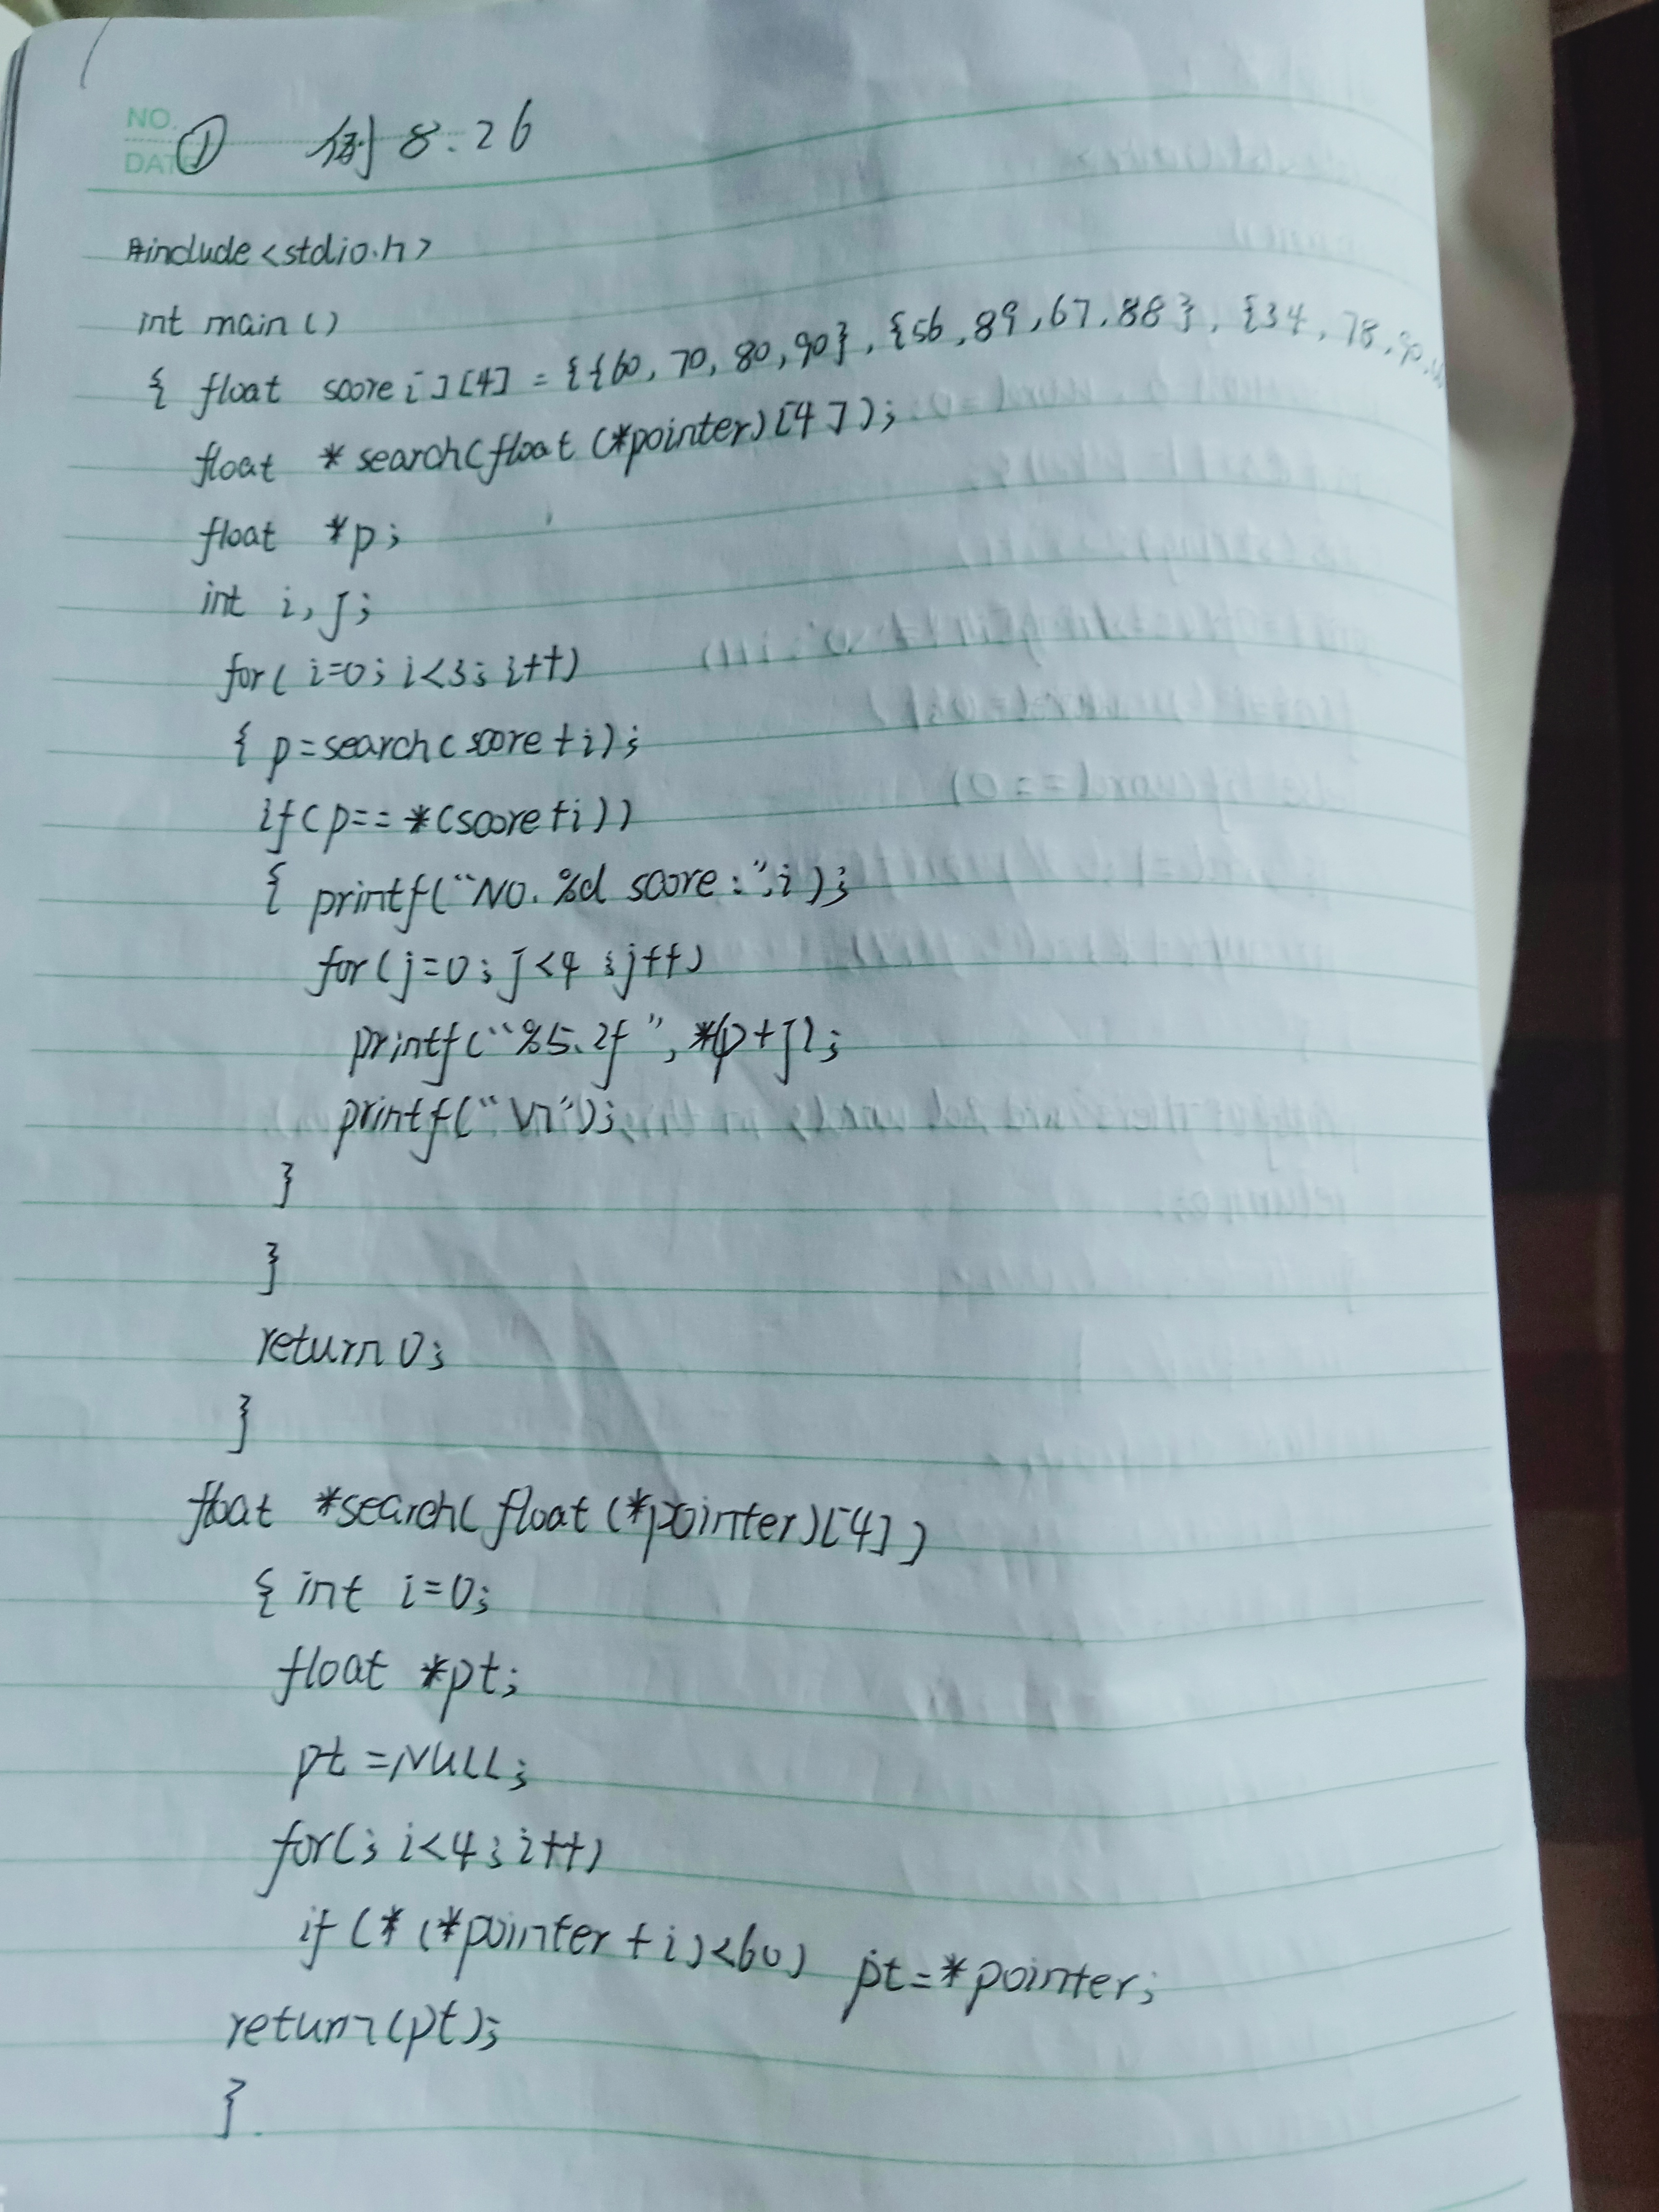 NO.
DATE
① 例 8.26
#include<stdio.h>
int main()
{ float score[][4] = {{60,70,80,90},{56,89,67,88},{34,78,90,
float *search(float (*pointer)[4]);
float *p;
int i,j;
for(i=0;i<3;i++)
{ p=search(score+i);
if(p==*(score+i))
{ printf("No.%d score:",i);
for(j=0;j<4;j++)
printf("%5.2f ",*(p+j);
printf("\n");
}
}
return 0;
}
float *search(float (*pointer)[4])
{ int i=0;
float *pt;
pt=NULL;
for(;i<4;i++)
if(*(*pointer+i)<60) pt=*pointer;
return(pt);
}.